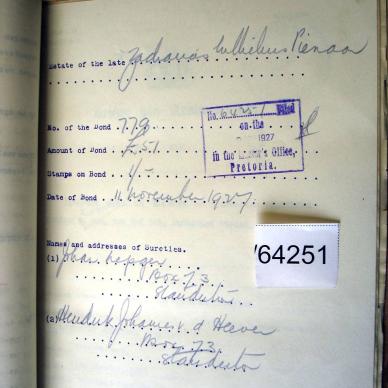 Estate of the late Zacharias Wilhelmus Pienaar
No. of the Bond 779
No. 64251 Filed
on the
1927
in the Master's Office,
Pretoria.
Amount of Bond £51
Stamps on Bond 1/-
Date of Bond 11 November 1927
/64251
Names and addresses of Sureties.
(1) Johan
Box 73
Standerton
(2) Hendrik Johannes v. d Heever
Box 73
Standerton